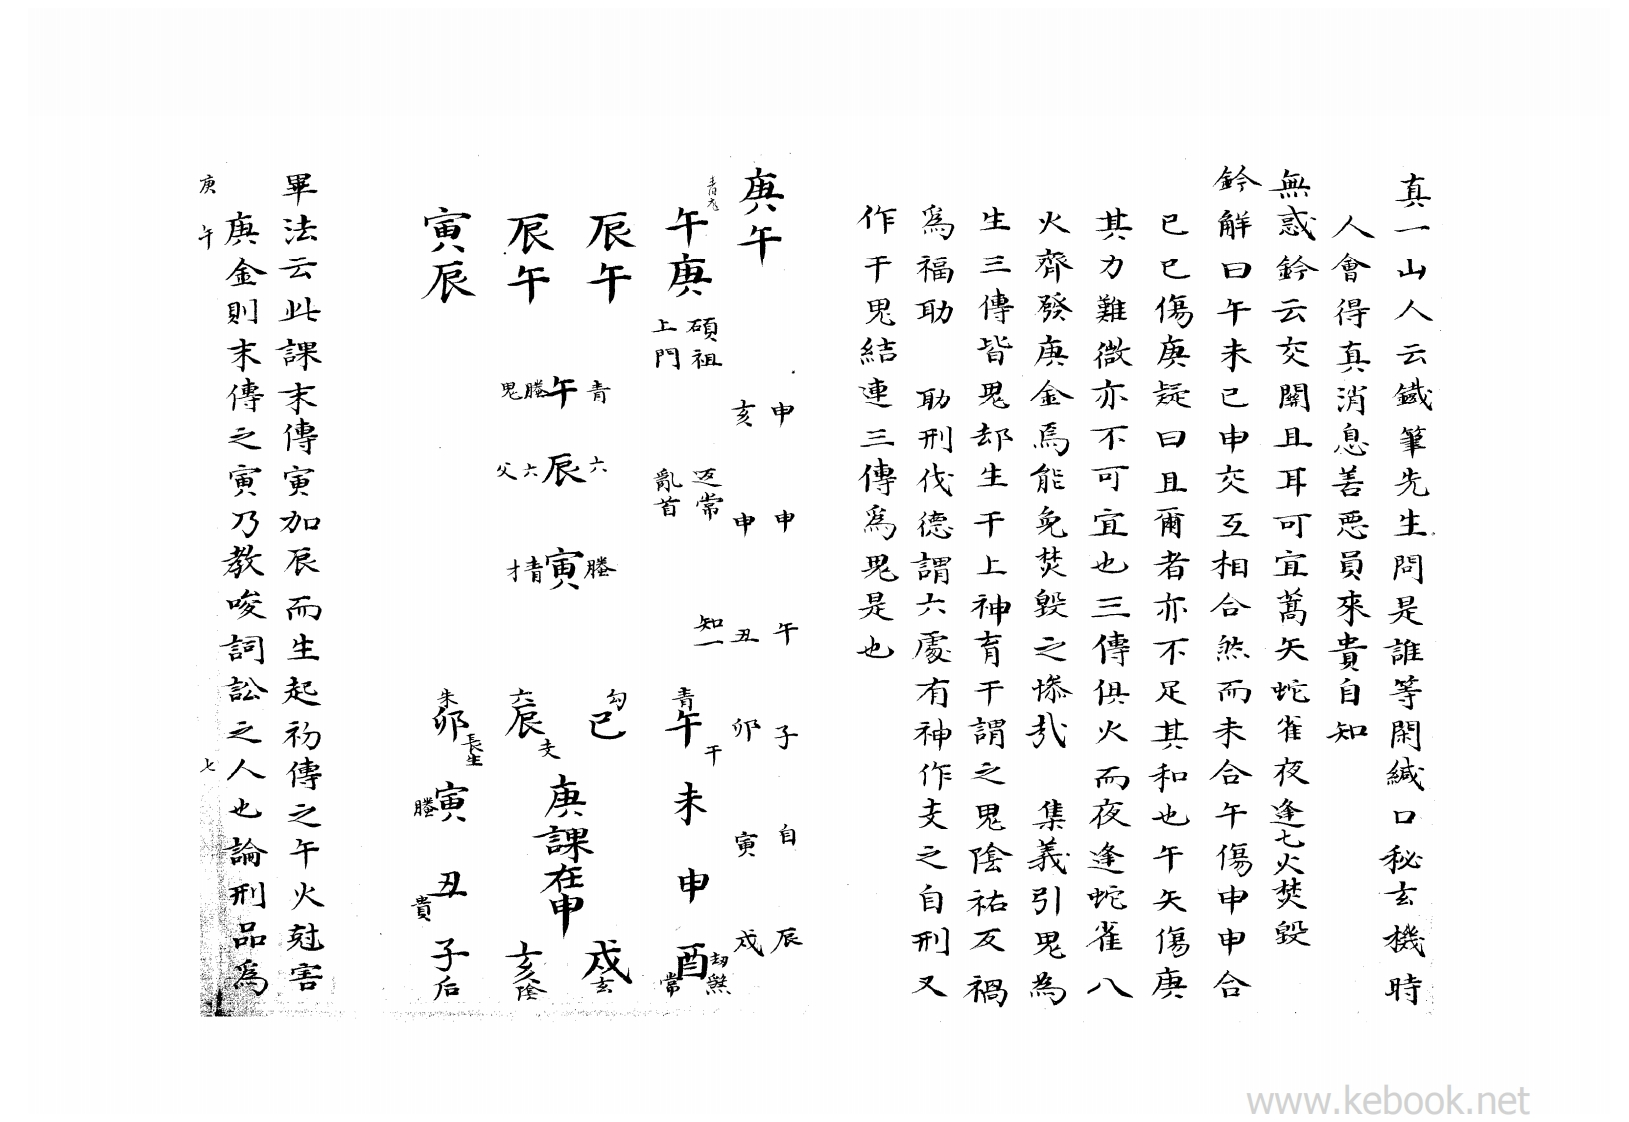 真一山人云鐵筆先生問是誰等閑緘口秘玄機時
人會得真消息善惡員來貴自知
無惑鈐云交關且耳可宜蒿矢蛇雀夜逢七火焚毀
鈐解曰午未已申交互相合煞而未合午傷申申合
已已傷庚疑曰且爾者亦不足其和也午矢傷庚
其力難微亦不可宜也三傳俱火而夜逢蛇雀八
火齊發庚金焉能免焚毀之慘哉　集義引鬼為
生三傳皆鬼却生干上神育干謂之鬼陰祐反禍
為福助　助刑伐德謂六處有神作支之自刑又
作干鬼結連三傳為鬼是也
庚午
申　申　午　子　自　辰
亥　申　丑　卯　寅　戍
午庚
辰午
辰午
寅辰
碩祖
上門
返常
亂首
知一
青午鬼螣
六辰六父
螣寅青才
青午干　未　申　酉刼煞常
勾已　戍玄
六辰支　亥陰
朱卯長生　寅螣　丑貴　子后
庚課在申
畢法云此課末傳寅加辰而生起初傳之午火尅害
庚金則末傳之寅乃教唆詞訟之人也論刑品為
庚午　七
www.kebook.net